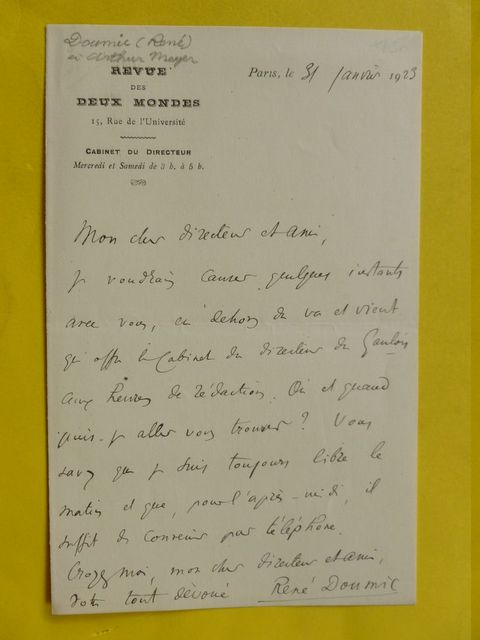 Doumic (René)
à Arthur Meyer
REVUE
DES
DEUX MONDES
15, Rue de l'Université
CABINET DU DIRECTEUR
Mercredi et Samedi de 3 h. à 5 h.
Paris, le 31 janvier 1923
Mon cher directeur et ami,
je voudrais causer quelques instants
avec vous, en dehors du va et vient
qu'offre le Cabinet du directeur du Gaulois
aux heures de rédaction. Où et quand
puis-je aller vous trouver ? Vous
savez que je suis toujours libre le
matin et que, pour l'après-midi, il
suffit de convenir par téléphone.
Croyez moi, mon cher directeur et ami,
votre tout dévoué René Doumic